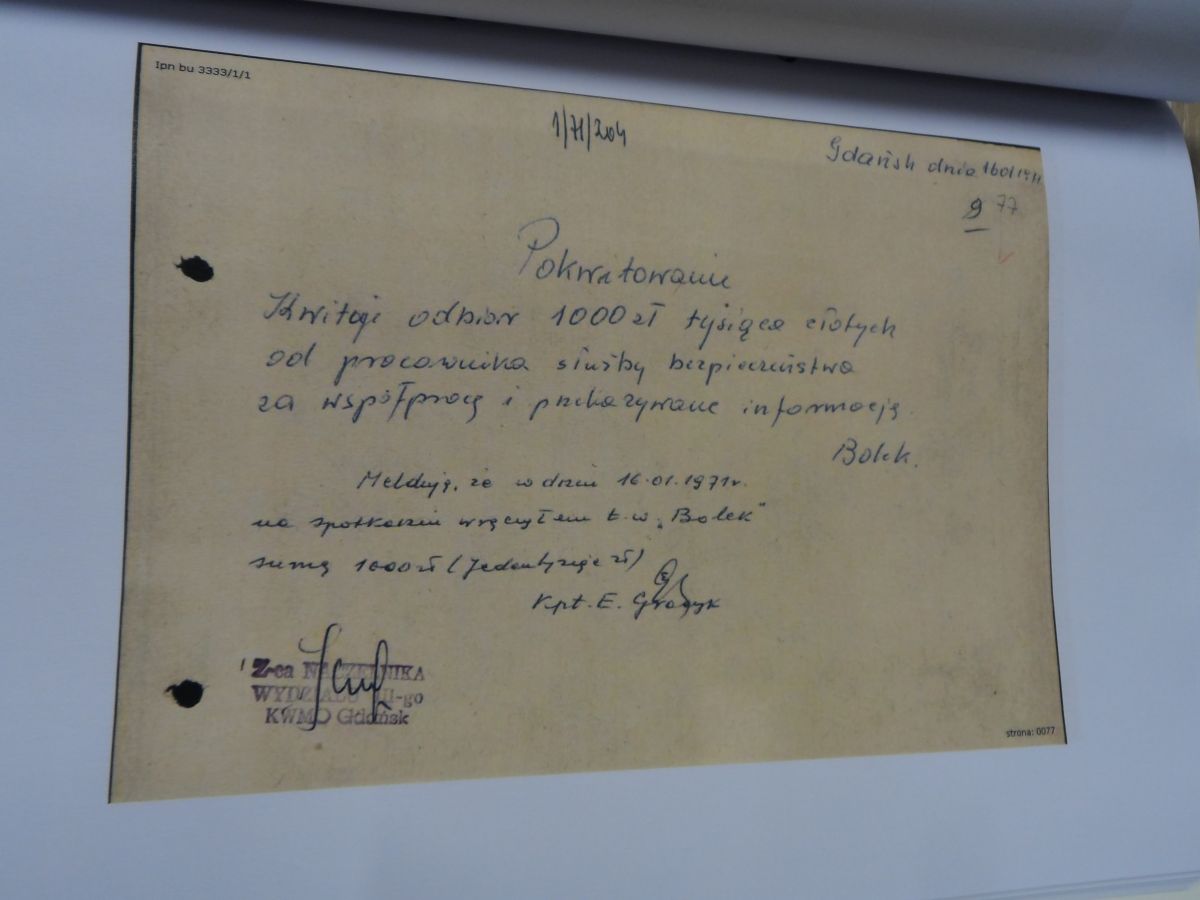 Ipn bu 3333/1/1
1/71/204
Gdańsk dnia 16011971
9 77
Pokwitowanie
Kwituję odbiór 1000 zł tysiąca złotych
od pracownika służby bezpieczeństwa
za współpracę i przekazywane informacją.
Bolek.
Melduję, że w dniu 16.01.1971r.
na spotkaniu wręczyłem t.w. „Bolek"
sumę 1000 zł (jedentysiąc zł)
Kpt. E. Graczyk
Z-ca NACZELNIKA
WYDZIAŁU III-go
KWMO Gdańsk
strona: 0077